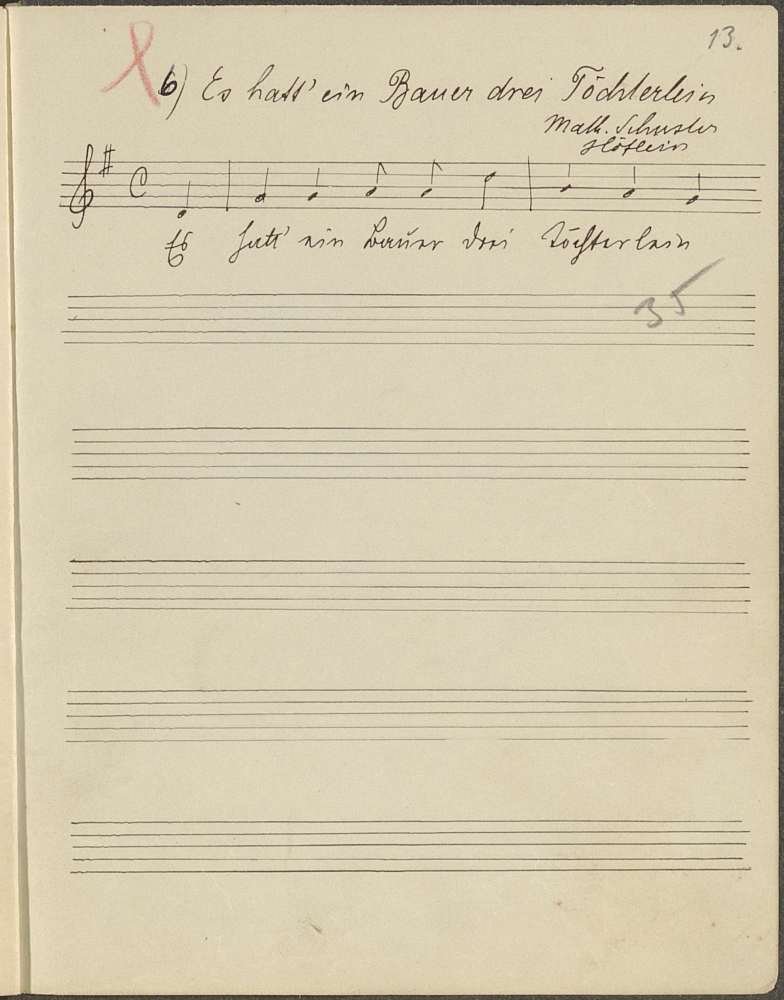 13.
6) Es hatt' ein Bauer drei Töchterlein
Math. Schuster
Es hatt' ein Bauer drei Töchterlein
35